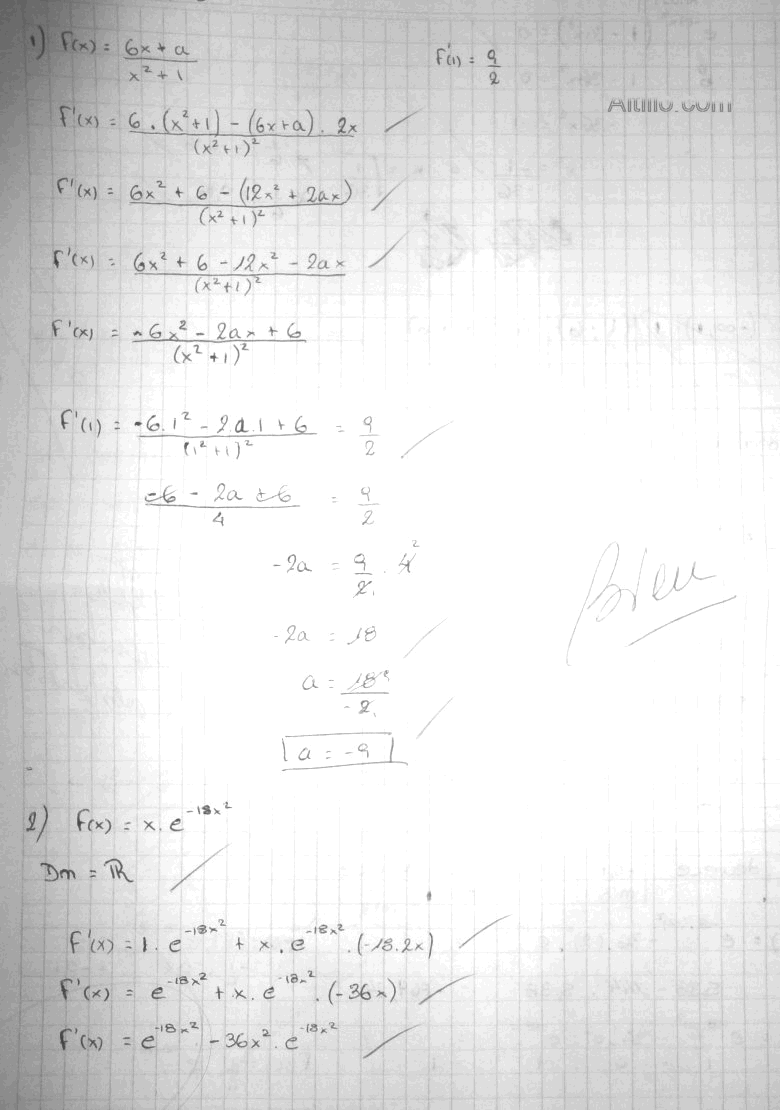 1) F(x) = (6x + a)/(x² + 1)    F'(1) = 9/2
Altillo.com
F'(x) = (6 . (x² + 1) - (6x + a) . 2x)/(x² + 1)²
F'(x) = (6x² + 6 - (12x² + 2ax))/(x² + 1)²
F'(x) = (6x² + 6 - 12x² - 2ax)/(x² + 1)²
F'(x) = (-6x² - 2ax + 6)/(x² + 1)²
F'(1) = (-6.1² - 2.a.1 + 6)/(1² + 1)² = 9/2
(-6 - 2a + 6)/4 = 9/2
-2a = 9/2 . 4
-2a = 18
a = 18/-2
a = -9
Bien
2) F(x) = x . e^(-18x²)
Dm = ℝ
F'(x) = 1 . e^(-18x²) + x . e^(-18x²) . (-18.2x)
F'(x) = e^(-18x²) + x . e^(-18x²) . (-36x)
F'(x) = e^(-18x²) - 36x² . e^(-18x²)